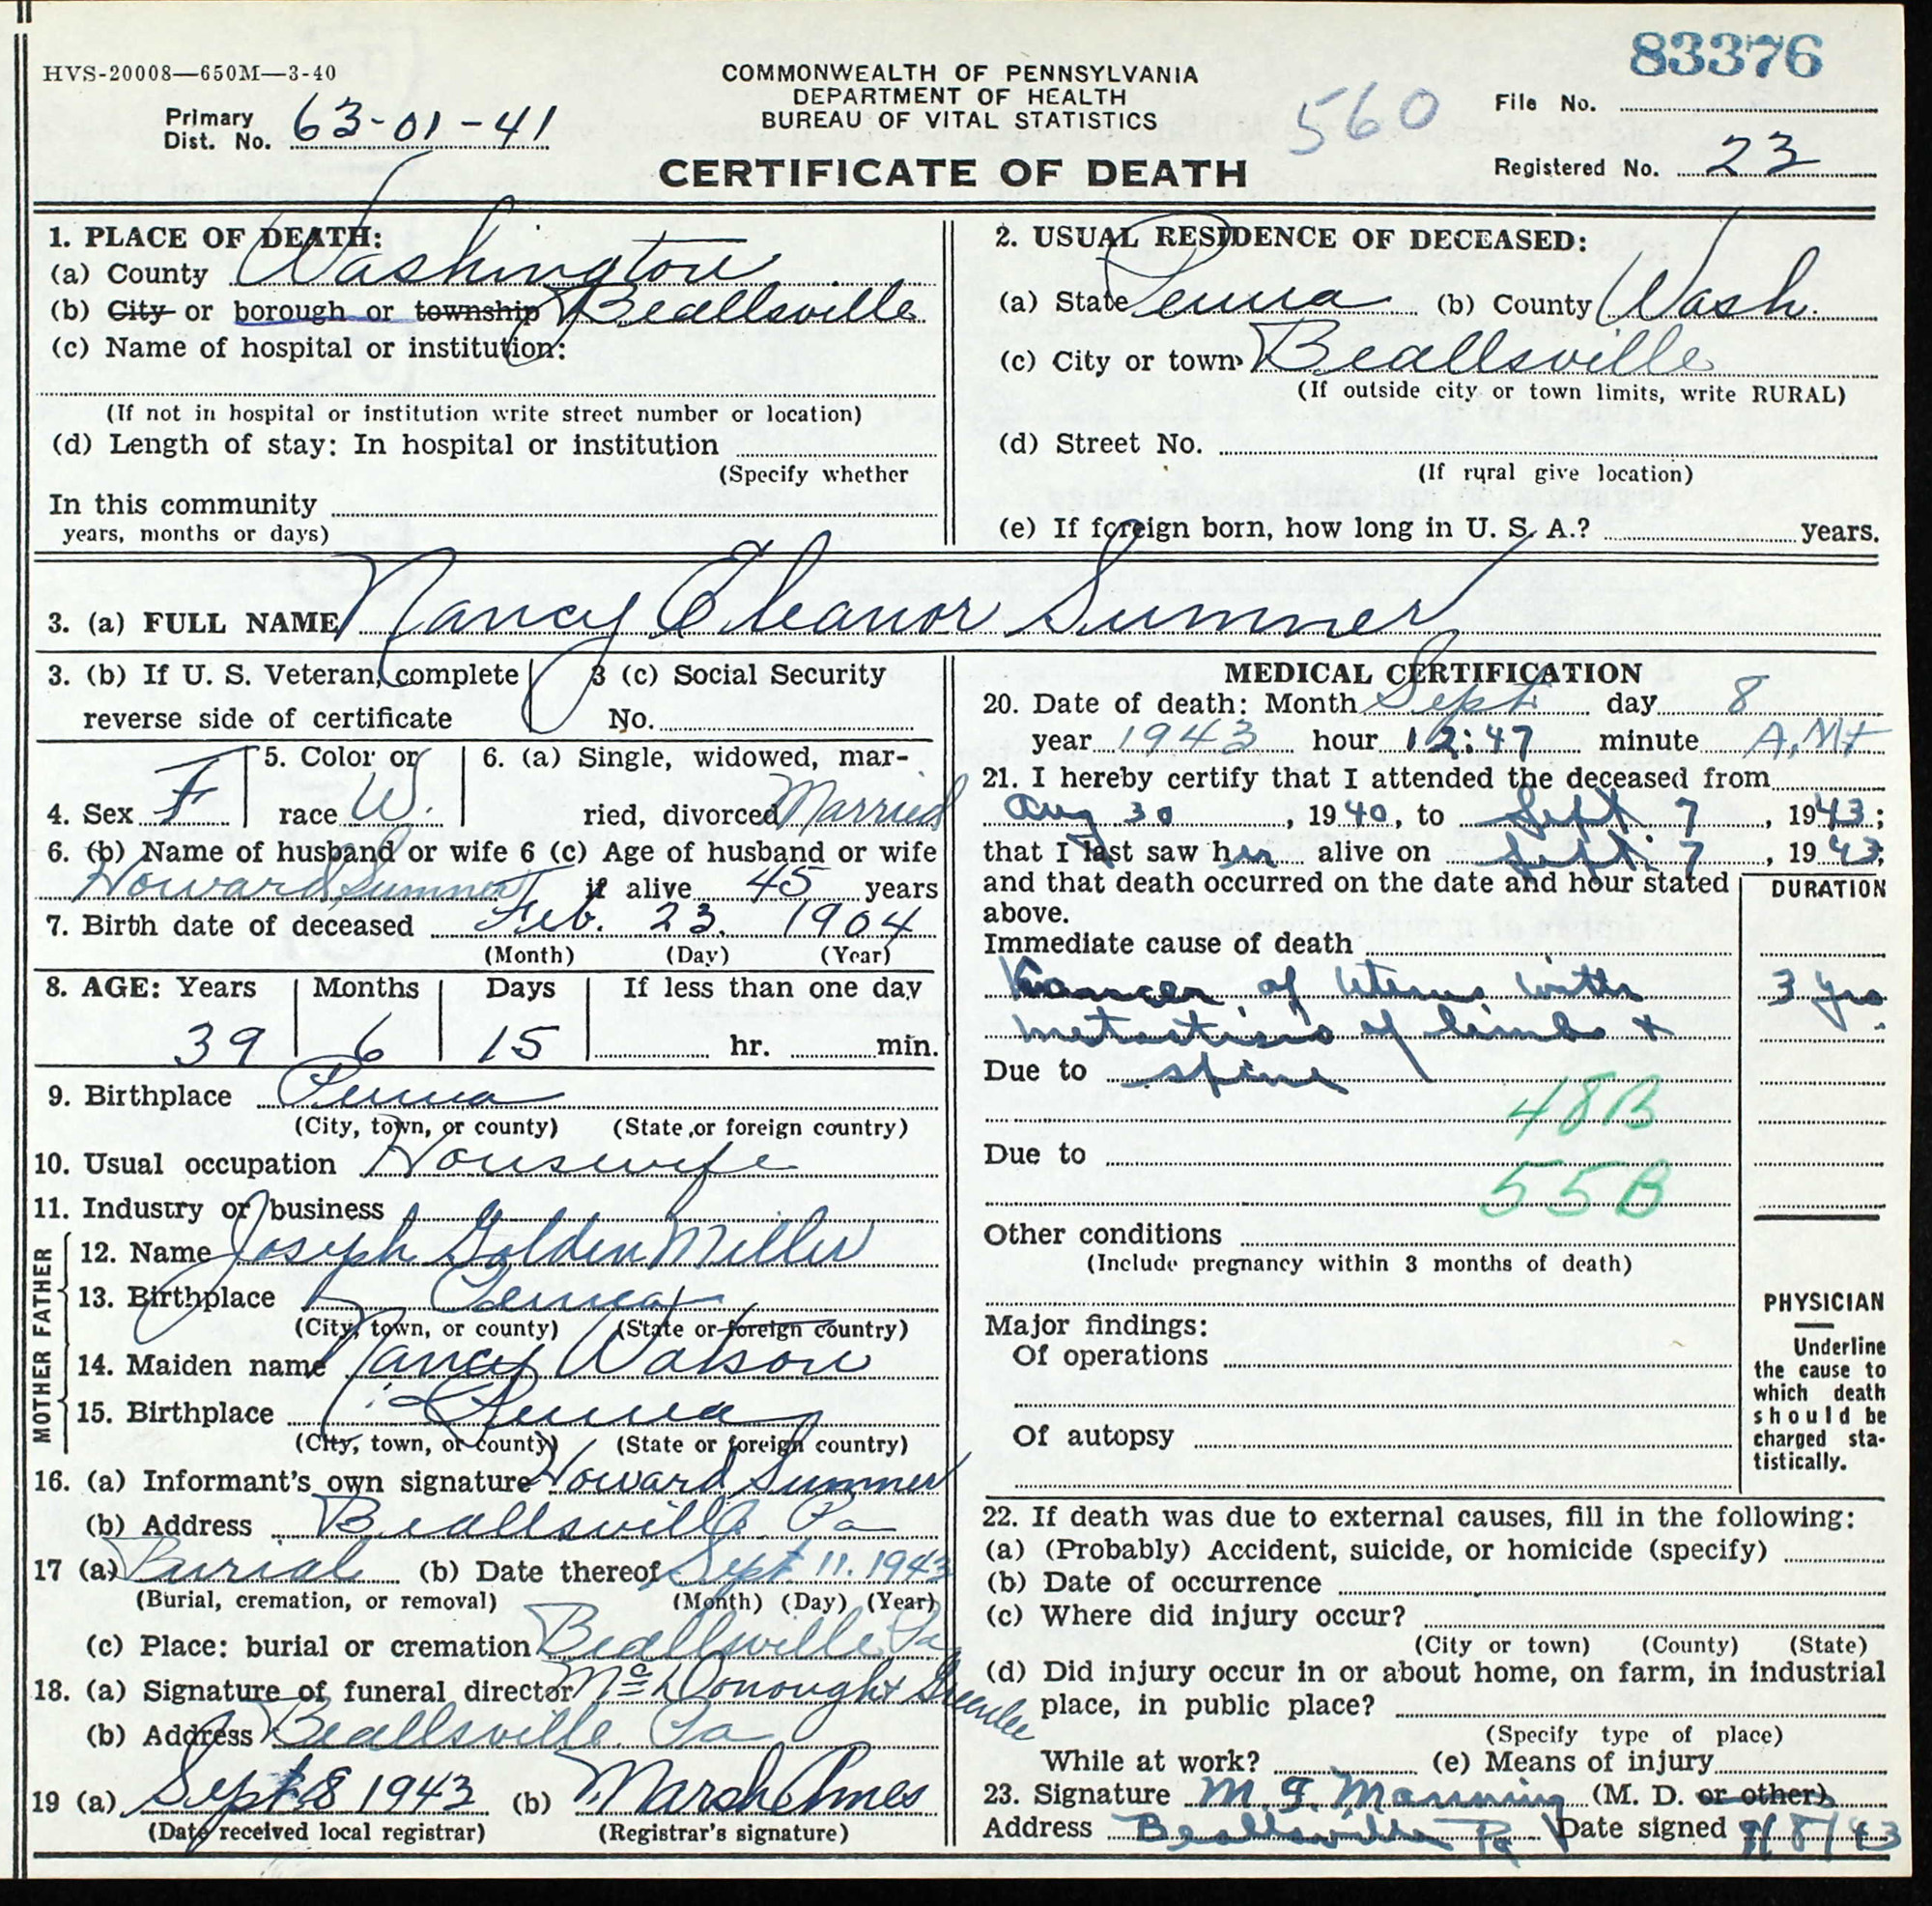 83376
HVS-20008—650M—3-40
COMMONWEALTH OF PENNSYLVANIA
DEPARTMENT OF HEALTH
BUREAU OF VITAL STATISTICS
560
File No.
Primary
Dist. No. 63-01-41
CERTIFICATE OF DEATH
Registered No. 23
1. PLACE OF DEATH:
(a) County Washington
(b) City or borough or township Beallsville
(c) Name of hospital or institution:
(If not in hospital or institution write street number or location)
(d) Length of stay: In hospital or institution
(Specify whether
In this community
years, months or days)
2. USUAL RESIDENCE OF DECEASED:
(a) State Penna (b) County Wash.
(c) City or town Beallsville
(If outside city or town limits, write RURAL)
(d) Street No.
(If rural give location)
(e) If foreign born, how long in U. S. A.? years.
3. (a) FULL NAME Nancy Eleanor Summer
3. (b) If U. S. Veteran, complete
reverse side of certificate
3 (c) Social Security
No.
4. Sex F
5. Color or
race W.
6. (a) Single, widowed, mar-
ried, divorced Married
6. (b) Name of husband or wife
Howard Summer
6 (c) Age of husband or wife
if alive 45 years
7. Birth date of deceased Feb. 23. 1904
(Month) (Day) (Year)
8. AGE: Years Months Days If less than one day
39 6 15 hr. min.
9. Birthplace Penna
(City, town, or county) (State or foreign country)
10. Usual occupation Housewife
11. Industry or business
FATHER
12. Name Joseph Golden Miller
13. Birthplace Penna
(City, town, or county) (State or foreign country)
MOTHER
14. Maiden name Nancy Watson
15. Birthplace Penna
(City, town, or county) (State or foreign country)
16. (a) Informant's own signature Howard Summer
(b) Address Beallsville Pa
17 (a) Burial (b) Date thereof Sept. 11. 1943
(Burial, cremation, or removal) (Month) (Day) (Year)
(c) Place: burial or cremation Beallsville Pa
18. (a) Signature of funeral director McDonough & Greenlee
(b) Address Beallsville. Pa
19 (a) Sept. 8 1943 (b) Marsh Ames
(Date received local registrar) (Registrar's signature)
MEDICAL CERTIFICATION
20. Date of death: Month Sept day 8
year 1943 hour 12:47 minute A.M.
21. I hereby certify that I attended the deceased from
Aug 30, 1940, to Sept. 7, 1943;
that I last saw her alive on Sept. 7, 1943,
and that death occurred on the date and hour stated
above.
DURATION
Immediate cause of death
Cancer of uterus with 3 yrs
metastasis of limbs &
Due to spine
48B
Due to
55B
Other conditions
(Include pregnancy within 3 months of death)
Major findings:
Of operations
Of autopsy
PHYSICIAN
Underline
the cause to
which death
should be
charged sta-
tistically.
22. If death was due to external causes, fill in the following:
(a) (Probably) Accident, suicide, or homicide (specify)
(b) Date of occurrence
(c) Where did injury occur?
(City or town) (County) (State)
(d) Did injury occur in or about home, on farm, in industrial
place, in public place?
(Specify type of place)
While at work? (e) Means of injury
23. Signature M. F. Manning (M. D. or other)
Address Beallsville Pa Date signed 9/8/43